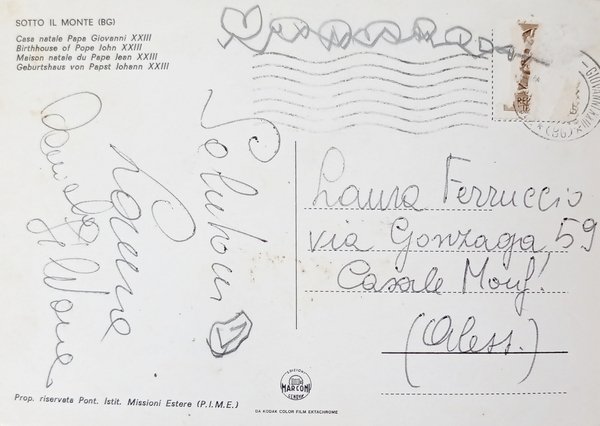 SOTTO IL MONTE (BG)
Casa natale Papa Giovanni XXIII
Birthhouse of Pope John XXIII
Maison natale du Pape Jean XXIII
Geburtshaus von Papst Johann XXIII
Saluti
Laura Ferruccio
via Gonzaga 59
Casale Monf.
(Aless.)
EDIZIONI
MARCONI
GENOVA
Prop. riservata Pont. Istit. Missioni Estere (P.I.M.E.)
DA KODAK COLOR FILM EKTACHROME